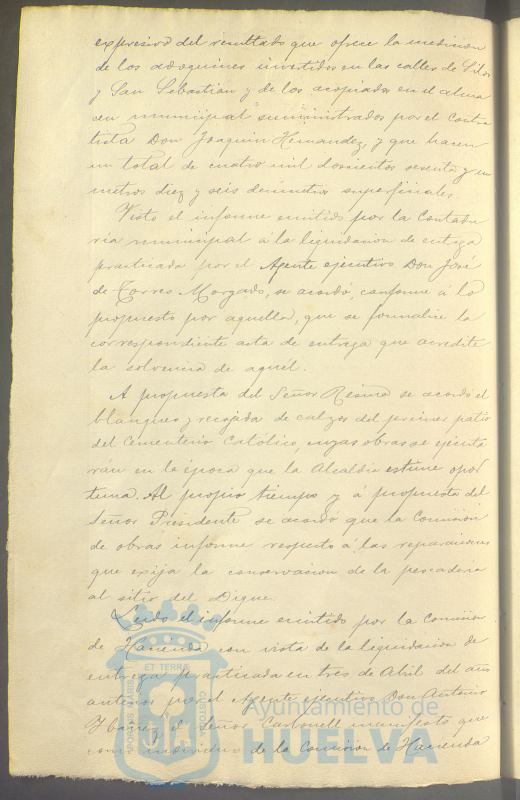 expresivo del resultado que ofrece la medicion
de los adoquines invertidos en las calles de Silos
y San Sebastián y de los acopiados en el alma
cen municipal suministrados por el Contra
tista Don Joaquin Hernandez y que hacen
un total de cuatro mil doscientos sesenta y un
metros diez y seis decimetros superficiales.
Visto el informe emitido por la Contadu
ría municipal á la liquidacion de entrega
practicada por el Agente ejecutivo Don José
de Torres Morgado, se acordó, conforme á lo
propuesto por aquella, que se formalice la
correspondiente acta de entrega que acredite
la solvencia de aquél.
A propuesta del Señor Resina se acordó el
blanqueo y recojida de calzos del primer patio
del Cementerio Católico, cuyas obras se ejecuta
ran en la época que la Alcaldía estime opor
tuna. Al propio tiempo y á propuesta del
Señor Presidente se acordó que la Comision
de obras informe respecto á las reparaciones
que exija la conservacion de la pescaderia
al sitio del Dique.
Leido el informe emitido por la Comision
de Hacienda con vista de la liquidacion de
entrega practicada en tres de Abril del año
anterior por el Agente ejecutivo Don Antonio
Ybañez el Señor Carbonell manifestó que
como individuo de la Comision de Hacienda
PORTUS MARIS
ET TERRÆ
CUSTODIA
Ayuntamiento de
HUELVA